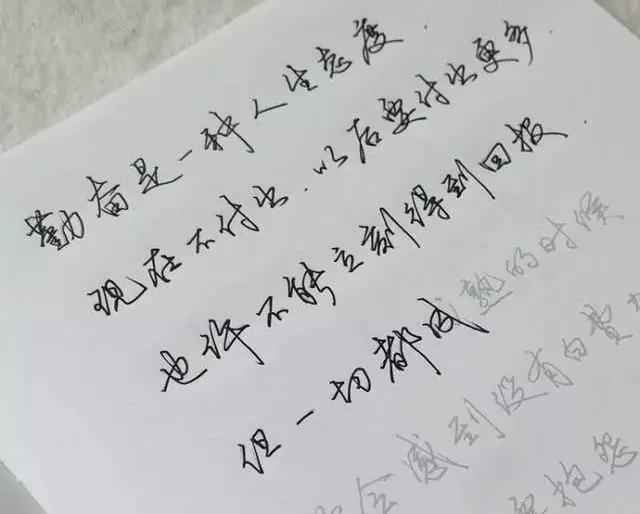 勤奋是一种人生态度.
现在不付出.以后要付出更多
也许不能立刻得到回报.
但一切都成熟的时候
会感到没有白费
要抱怨